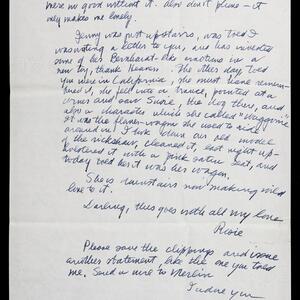 were no good without it. Also don't phone - it
only makes me lonely.
Jenny was just upstairs, was told I
was writing a letter to you, and has invented
some of her Bernhardt-like reactions in a
new toy, thank heaven. The other day, told
you were in California, she must have remem-
bered it, she fell into a trance, pointed at a
corner and saw Susie, the dog there, and
also a character whom she called "Waggoner"
It was the flower-wagon she used to ride
around in! I took down our red model
of the rickshaw, cleaned it, last night up-
holstered it with a pink satin seat, and
today told her it was her wagon.
She's downstairs now making wild
love to it.
Darling, this goes with all my love
Rosie
Please save the clippings and issue
another statement, like the one you told
me. Send a wire to Merlin
I adore you